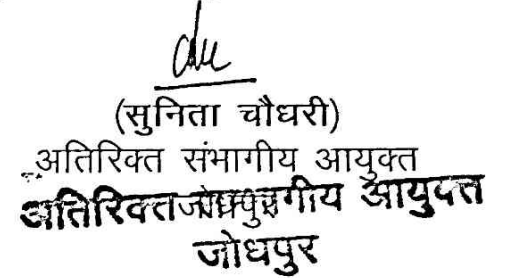 (सुनिता चौधरी)
अतिरिक्त संभागीय आयुक्त
अतिरिक्त संभागीय आयुक्त
जोधपुर
जोधपुर